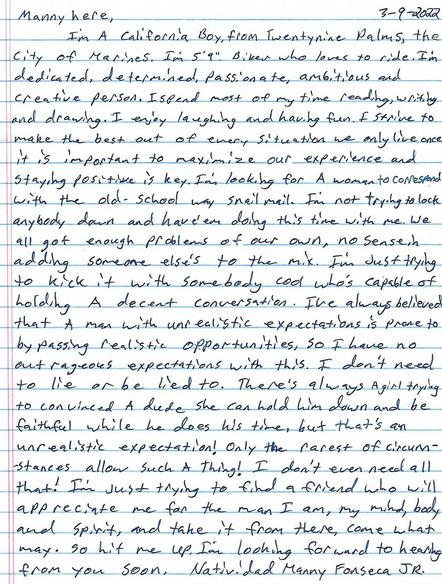 Manny here, 3-9-2022
I'm A California Boy, from Twentynine Palms, the
City of Marines. I'm 5'9" Biker who loves to ride. I'm
dedicated, determined, passionate, ambitious and
creative person. I spend most of my time reading, writing
and drawing. I enjoy laughing and having fun. I strive to
make the best out of every situation we only live once
it is important to maximize our experience and
staying positive is key. I'm looking for A woman to correspond
with the old-school way snail mail. I'm not trying to lock
anybody down and have'em doing this time with me. We
all got enough problems of our own, no sense in
adding someone else's to the mix. I'm just trying
to kick it with somebody cool who's capable of
holding A decent conversation. I've always believed
that A man with unrealistic expectations is prone to
by passing realistic opportunities, so I have no
outrageous expectations with this. I don't need
to lie or be lied to. There's always A girl trying
to convinced A dude she can hold him down and be
faithful while he does his time, but that's an
unrealistic expectation! Only the rarest of circum-
stances allow such A thing! I don't even need all
that! I'm just trying to find a friend who will
appreciate me for the man I am, my mind, body
and spirit, and take it from there, come what
may. So hit me up. I'm looking forward to hearing
from you soon, Natividad Manny Fonseca JR.